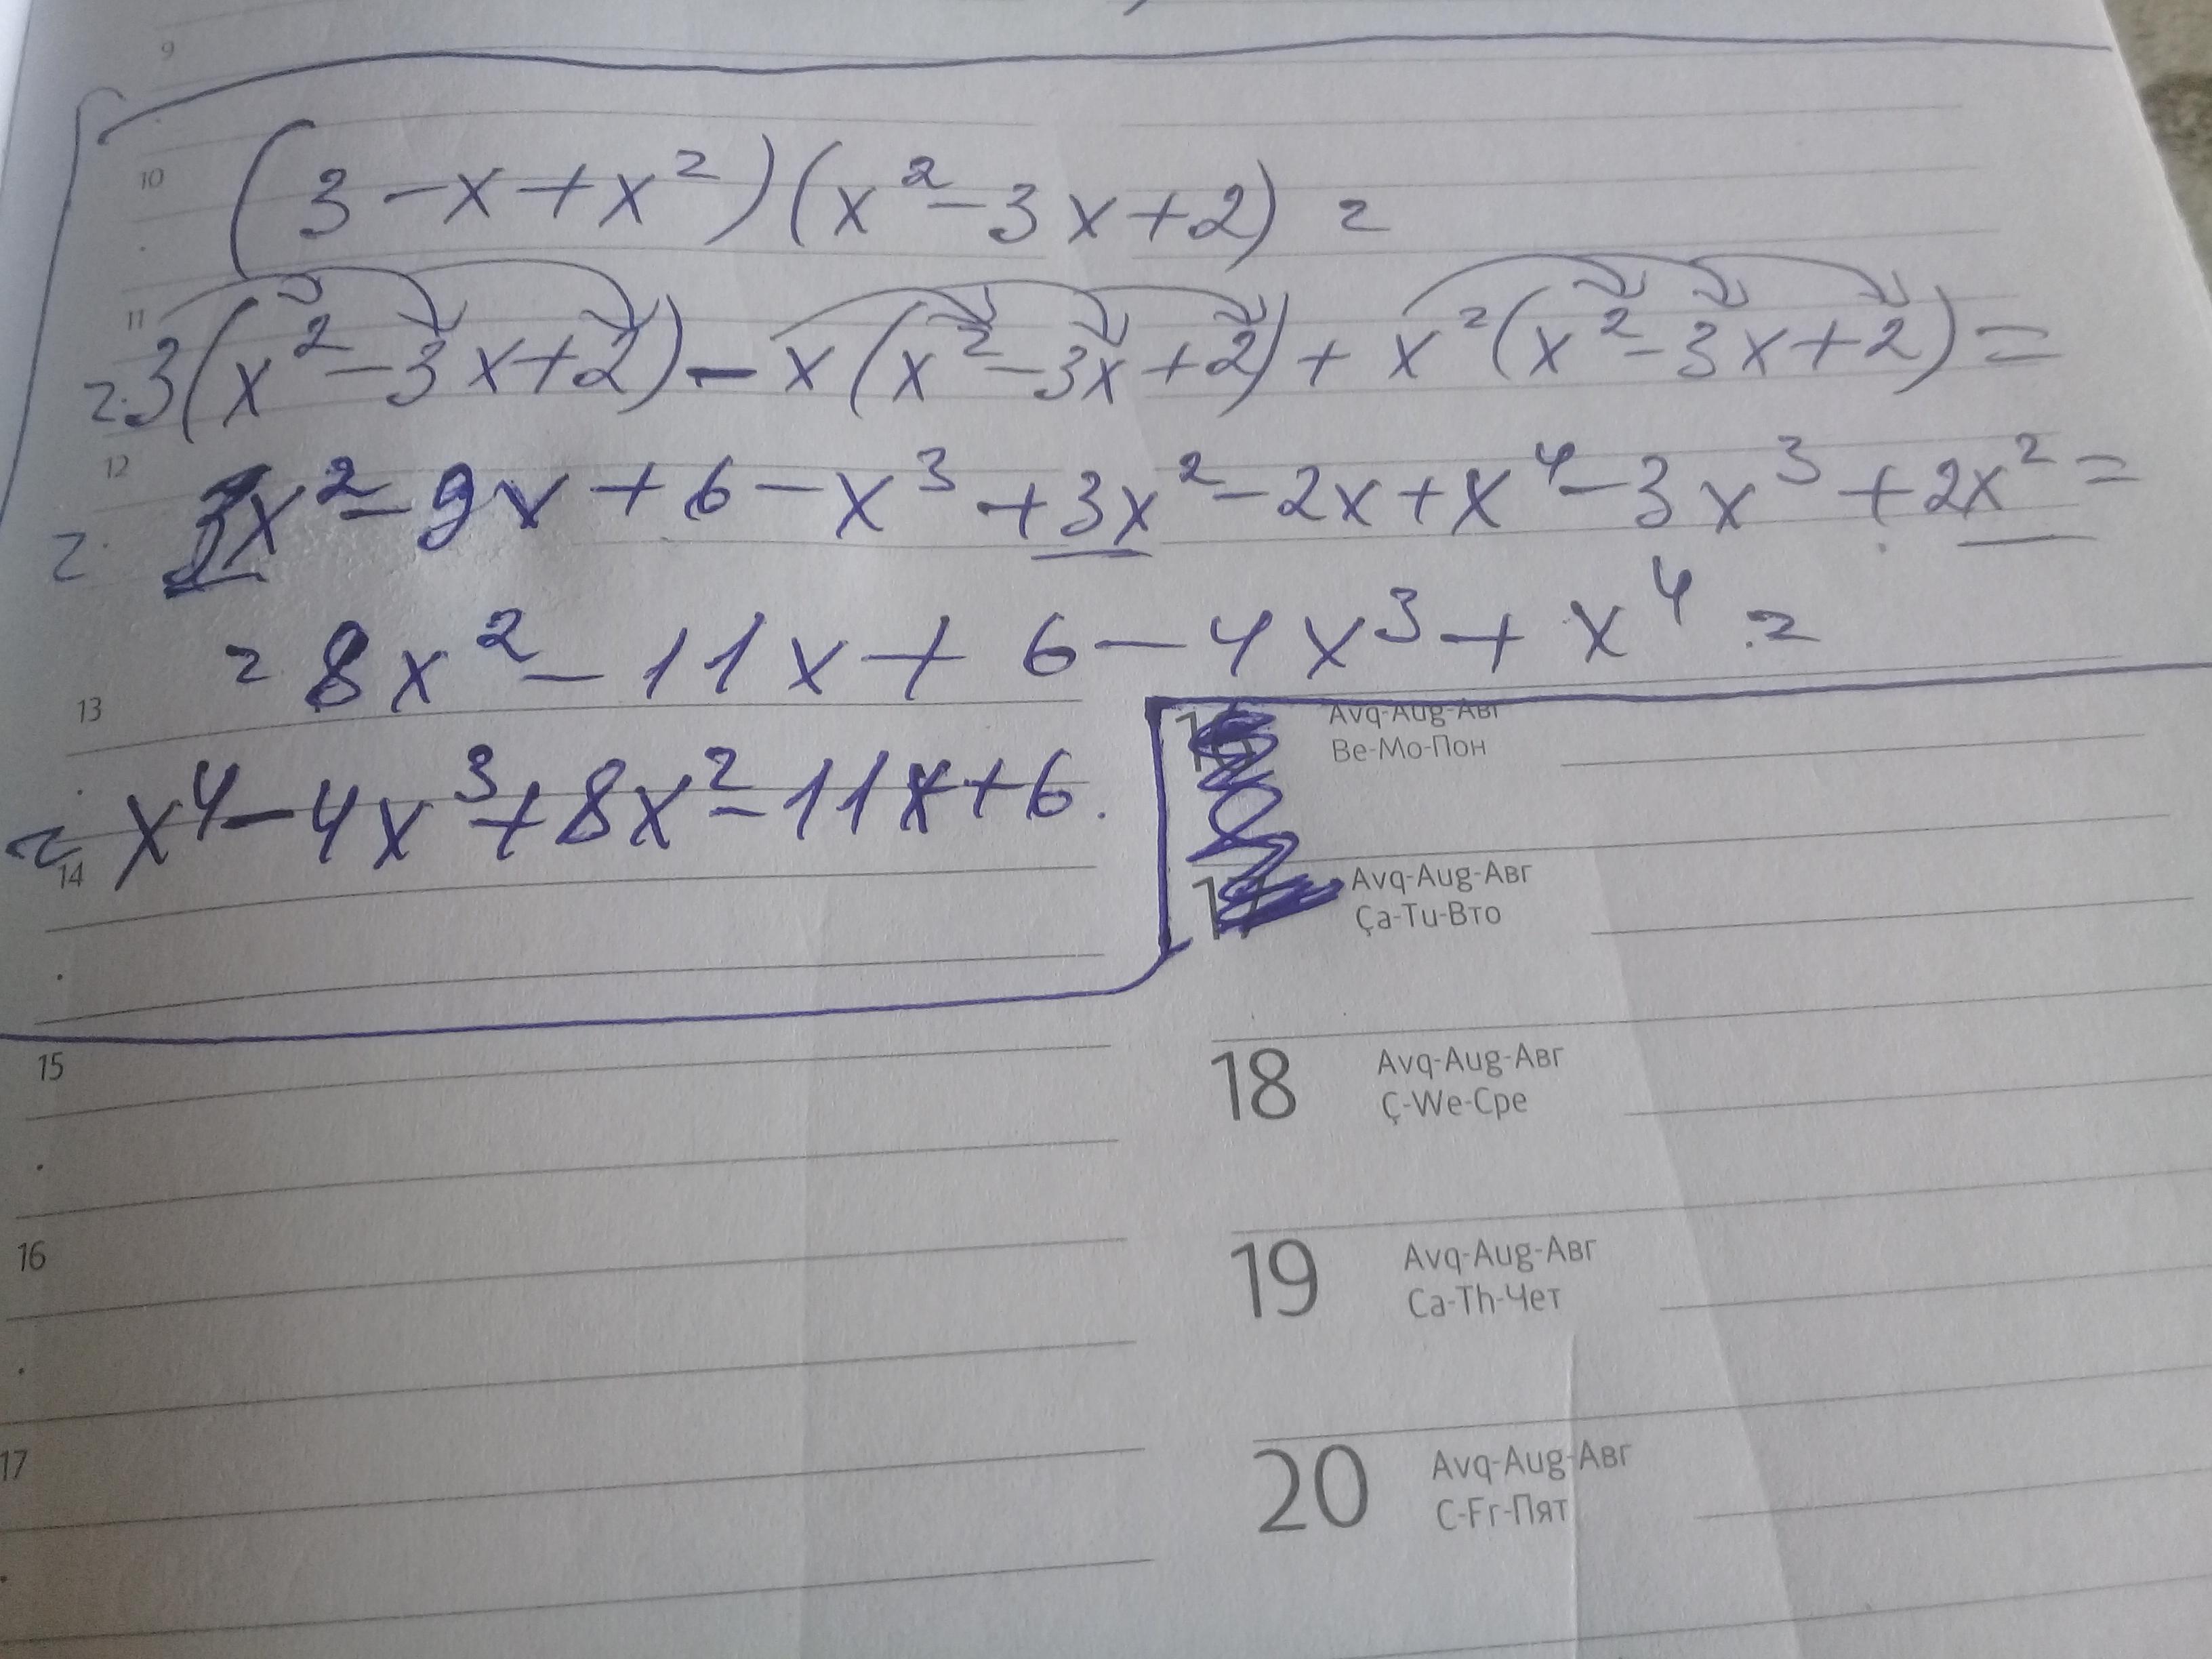 9
10
(3-x+x²)(x²-3x+2)=
11
=3(x²-3x+2)-x(x²-3x+2)+x²(x²-3x+2)=
12
=3x²-9x+6-x³+3x²-2x+x⁴-3x³+2x²=
=8x²-11x+6-4x³+x⁴=
13
=x⁴-4x³+8x²-11x+6.
14
15
16
17
Avq-Aug-Авг
Be-Mo-Пон
Avq-Aug-Авг
Ça-Tu-Вто
18
Avq-Aug-Авг
Ç-We-Сре
19
Avq-Aug-Авг
Ca-Th-Чет
20
Avq-Aug-Авг
C-Fr-Пят